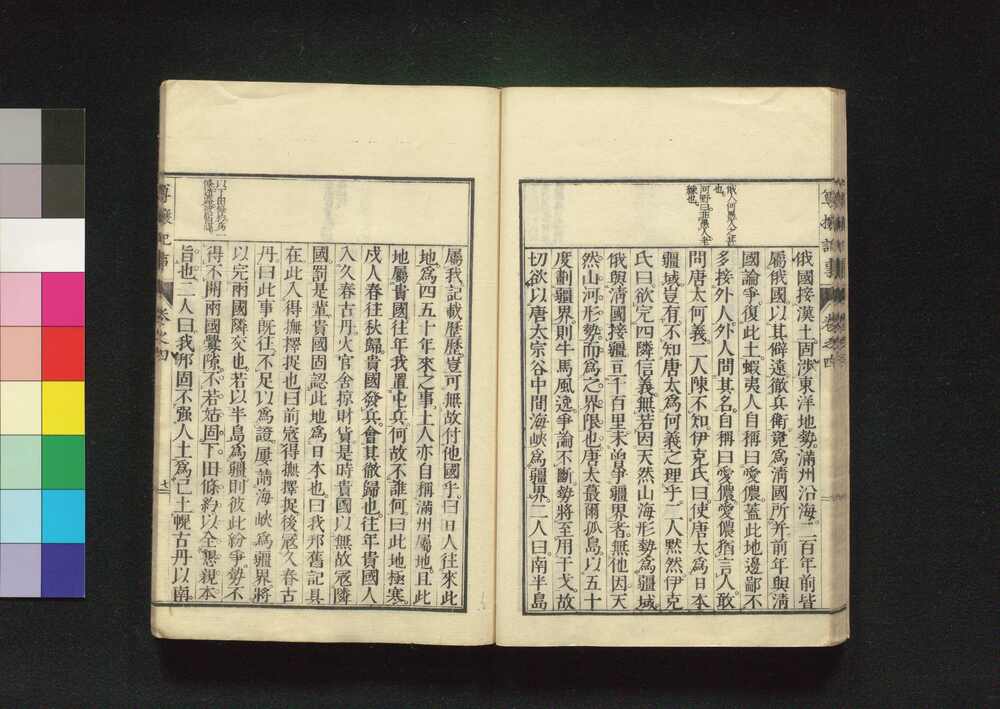 俄國接漢土。固涉東洋地勢。滿州沿海。二百年前皆
屬俄國。以其僻遠徹兵衛。竟爲淸國所并。前年與淸
國論爭。復此土。蝦夷人自稱曰愛儂。蓋此地邊鄙不
多接外人。外人問其名。自稱曰愛儂。愛儂猶言人。敢
問唐太何義。二人陳不知。伊克氏曰。使唐太爲日本
疆域。豈有不知唐太爲何義之理乎。二人黙然。伊克
氏曰。欲完四隣信義。無若因天然山海形勢爲疆域。
俄與淸國接疆。亘千百里。未曾爭疆界者。無他。因天
然山河形勢。而爲之界限也。唐太蕞爾孤島。以五十
度劃疆界。則牛馬風逸。爭論不斷。勢將至用干戈。故
切欲以唐太宗谷中間海峽爲疆界。二人曰。南半島
卷之四
屬我。記載歷歷。豈可無故付他國乎。曰。日人往來此
地。爲四五十年來之事。土人亦自稱滿州屬地。且此
地屬貴國。往年我置屯兵。何故不誰何。曰。此地極寒。
戍人春往秋歸。貴國發兵。會其徹歸也。往年貴國人
入久春古丹。火官舍。掠財貨。是時貴國以無故寇隣
國罰是輩。貴國固認此地爲日本也。曰。我邦舊記具
在。此人得撫擇捉也。曰。前寇得撫擇捉。後寇久春古
丹。曰。此事旣往。不足以爲證。厪請海峽爲疆界。將
以完兩國隣交也。若以半島爲疆。則彼此紛爭。勢不
得不開兩國釁隙。不若姑固下田條約。以全懇親本
旨也。二人曰。我邦固不强人土爲己土。幌古丹以南
卷之四